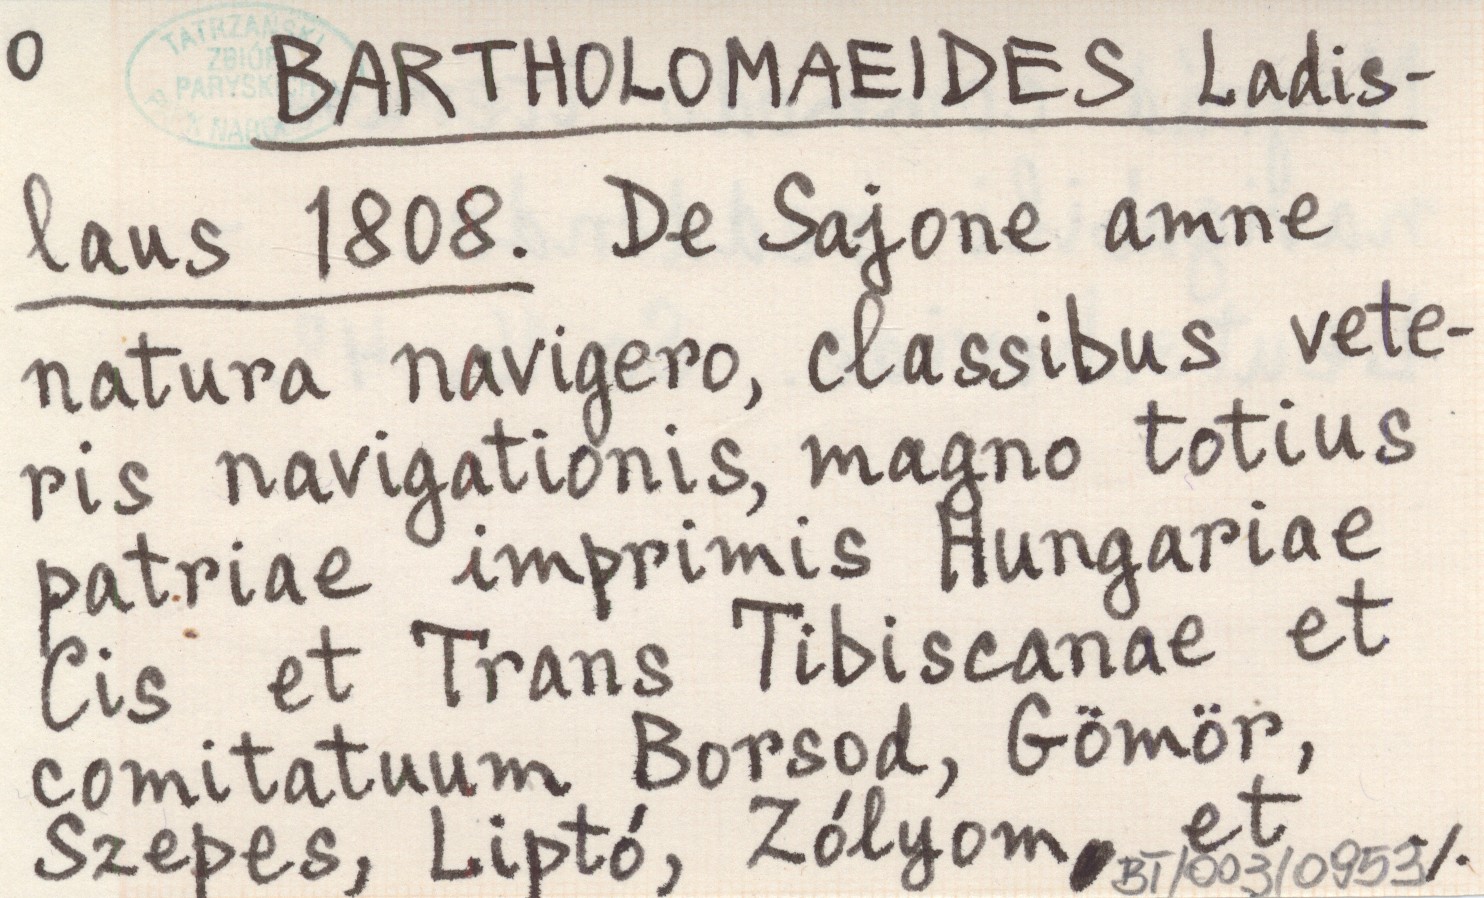 o
TATRZAŃSKI
ZBIÓR
PARYSKICH
BARTHOLOMAEIDES Ladis-
laus 1808. De Sajone amne
natura navigero, classibus vete-
ris navigationis, magno totius
patriae imprimis Hungariae
Cis et Trans Tibiscanae et
comitatuum Borsod, Gömör,
Szepes, Liptó, Zólyom, et
BT/003/0953/.